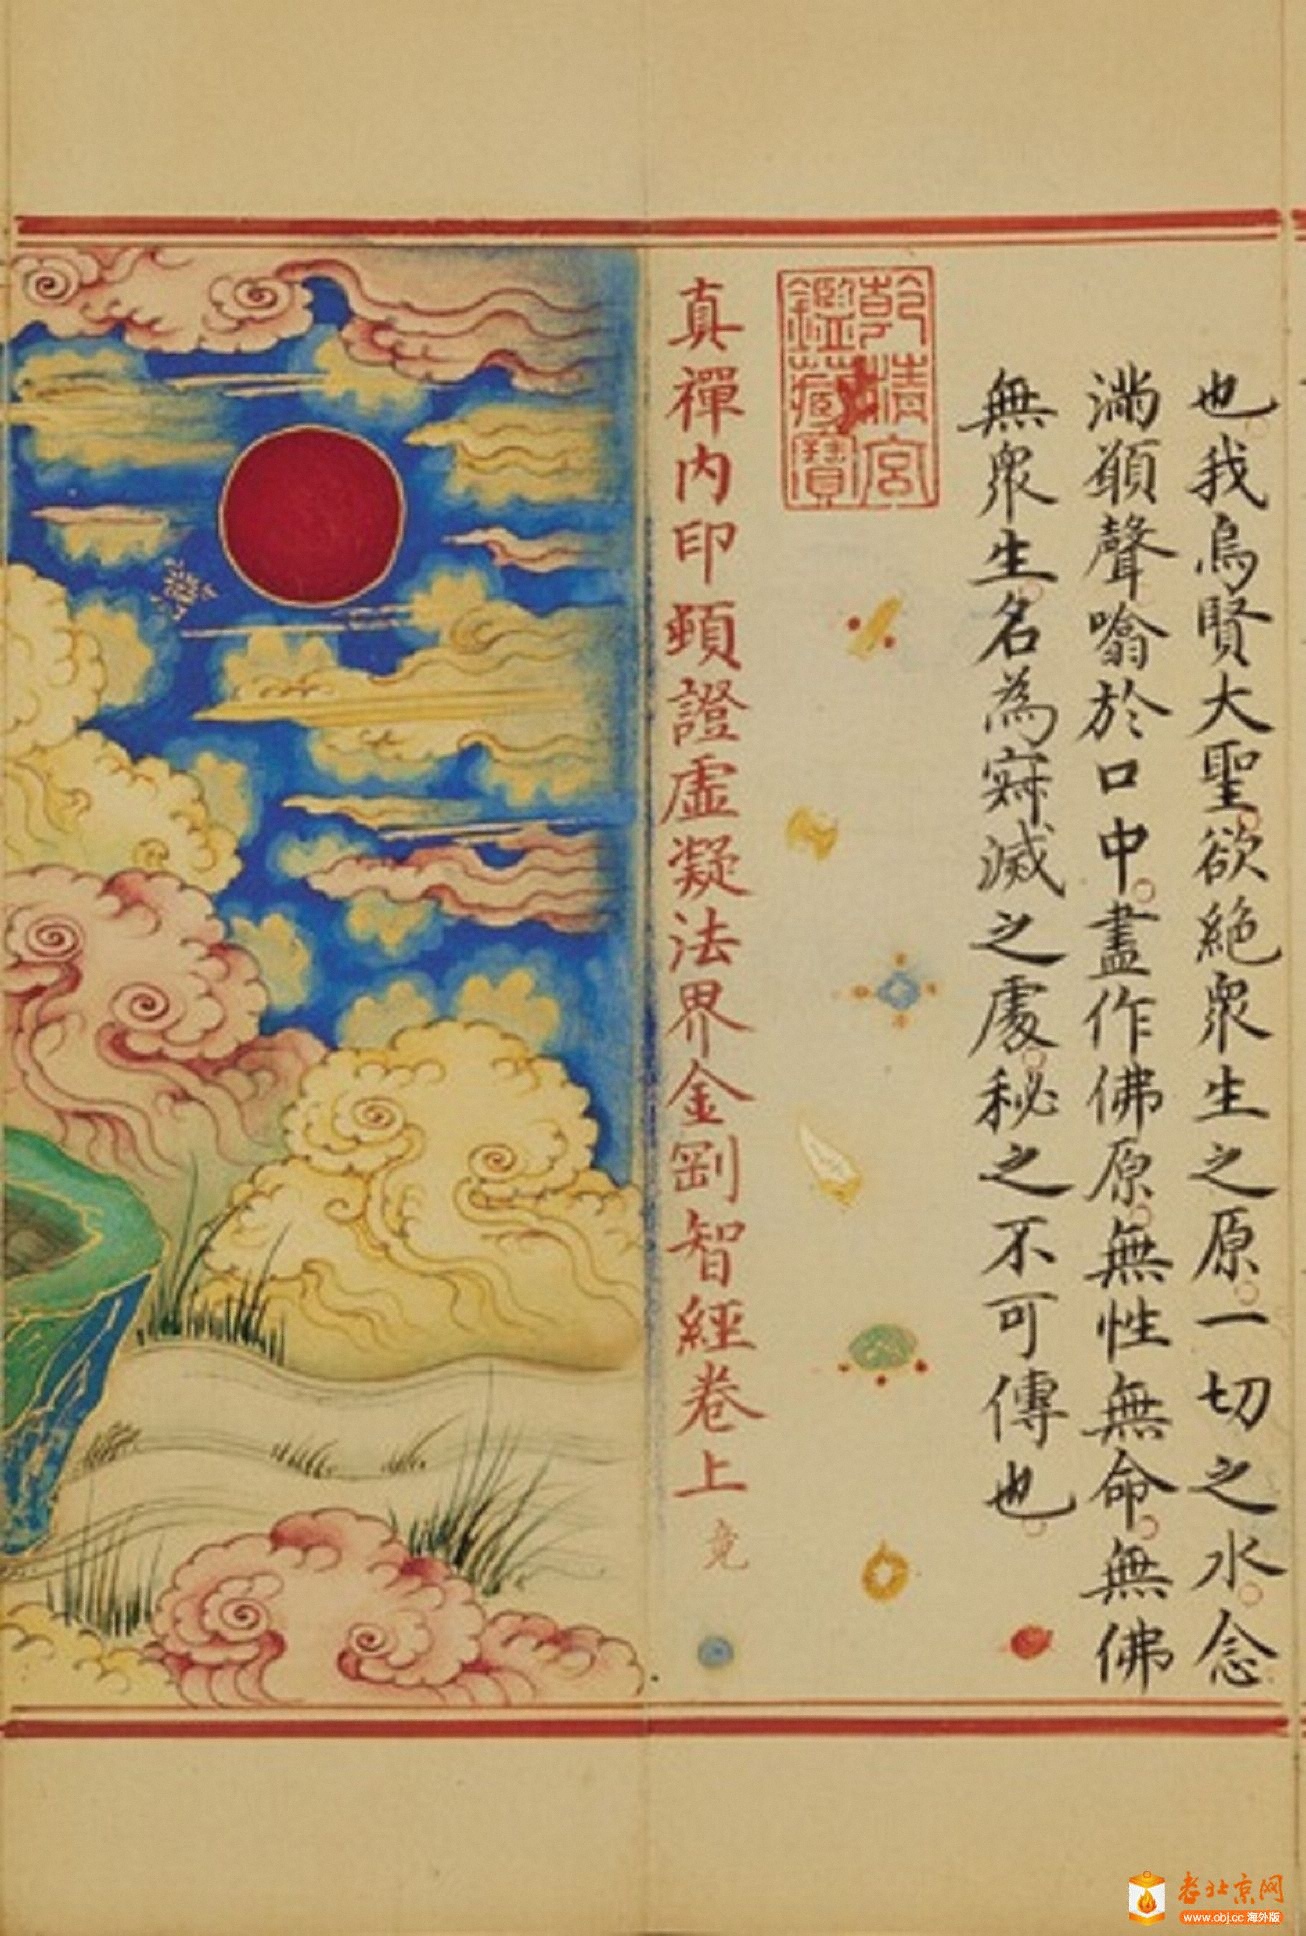 也我為賢大聖欲絕衆生之原一切之水念
滿願聲噏於口中盡作佛原無性無命無佛
無衆生名為寂滅之處秘之不可傳也
乾清宮
鑑藏寶
真禪內印頓證虛凝法界金剛智經卷上
竟
老北京网
www.obj.cc 海外版